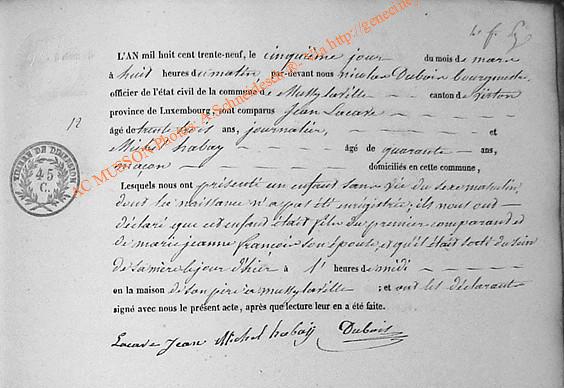 L'AN mil huit cent trente-neuf, le cinquième jour du mois de mars
à huit heures du matin par-devant nous nicolas Dubois bourgmestre
officier de l'état civil de la commune de Mussy laville canton de Virton
province de Luxembourg, sont comparus Jean Lacave
12
âgé de trente trois ans, journalier, et
Michel habay âgé de quarante ans,
maçon domiciliés en cette commune,
45
C.
Lesquels nous ont présenté un enfant sans vie du sexe masculin
dont la naissance n'a pas été enregistrée; ils nous ont
déclaré que cet enfant était fils du premier comparant et
de marie jeanne françois son épouse, et qu'il était sorti du sein
de sa mère le jour d'hier à 1 heures de midi
en la maison de son père à mussy laville; et ont les déclarants
signé avec nous le présent acte, après que lecture leur en a été faite.
Lacave Jean Michel habay Dubois
AC MUSSON Photos A.Schneidesch - via http://geneciney